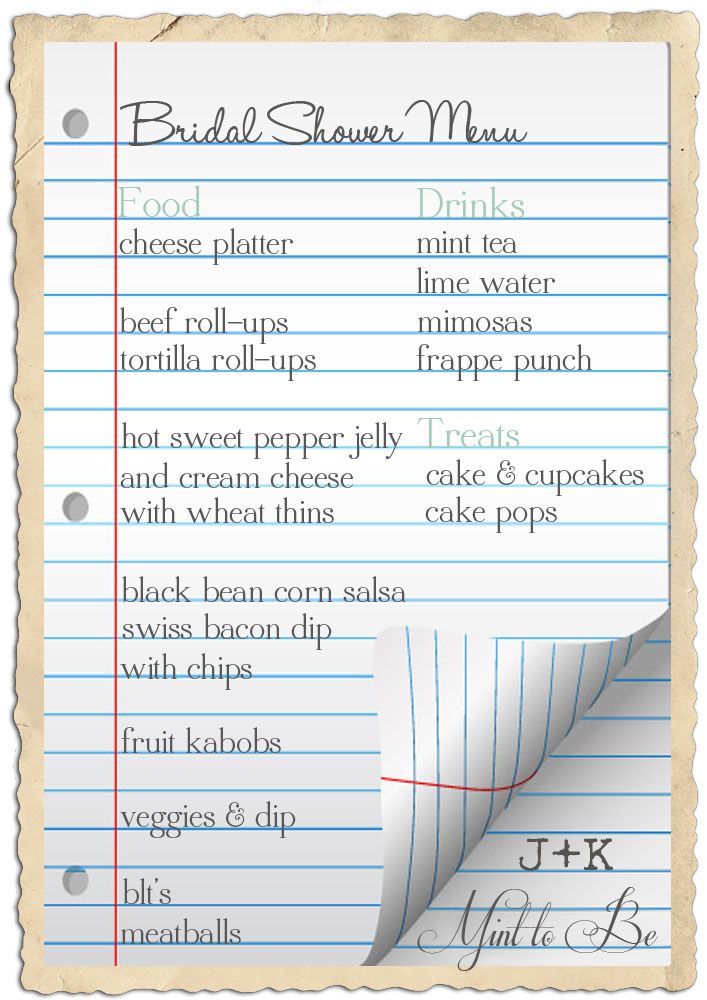 Bridal Shower Menu
Food
cheese platter
beef roll-ups
tortilla roll-ups
hot sweet pepper jelly
and cream cheese
with wheat thins
black bean corn salsa
swiss bacon dip
with chips
fruit kabobs
veggies & dip
blt's
meatballs
Drinks
mint tea
lime water
mimosas
frappe punch
Treats
cake & cupcakes
cake pops
J+K
Mint to Be